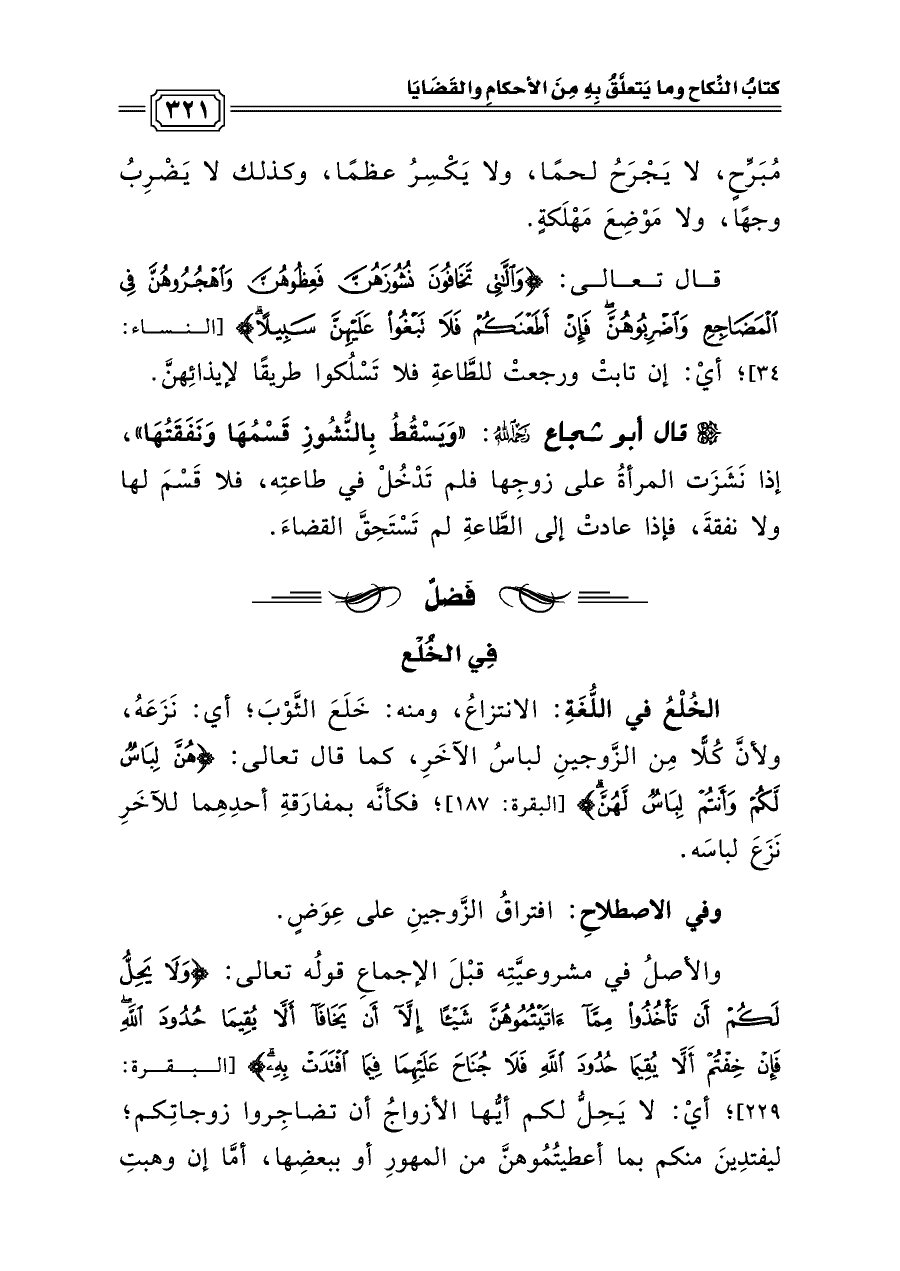 كتابُ النِّكاح وما يَتعلَّقُ بِهِ مِنَ الأحكامِ والقَضَايَا
٣٢١
مُبَرِّحٍ، لا يَجْرَحُ لحمًا، ولا يَكْسِرُ عظمًا، وكذلك لا يَضْرِبُ
وجهًا، ولا مَوْضِعَ مَهْلَكةٍ.
قال تعالى: ﴿وَٱلَّٰتِي تَخَافُونَ نُشُوزَهُنَّ فَعِظُوهُنَّ وَٱهْجُرُوهُنَّ فِي
ٱلْمَضَاجِعِ وَٱضْرِبُوهُنَّۖ فَإِنْ أَطَعْنَكُمْ فَلَا تَبْغُواْ عَلَيْهِنَّ سَبِيلًاۗ﴾ [النساء:
٣٤]؛ أيْ: إن تابتْ ورجعتْ للطَّاعةِ فلا تَسْلُكوا طريقًا لإيذائِهنَّ.
قال أبو شجاع رَحِمَهُ ٱللَّهُ: «وَيَسْقُطُ بِالنُّشُوزِ قَسْمُهَا وَنَفَقَتُهَا»،
إذا نَشَزَت المرأةُ على زوجِها فلم تَدْخُلْ في طاعتِه، فلا قَسْمَ لها
ولا نفقةَ، فإذا عادتْ إلى الطَّاعةِ لم تَسْتَحِقَّ القضاءَ.
فَصْلٌ
فِي الخُلْعِ
الخُلْعُ في اللُّغَةِ: الانتزاعُ، ومنه: خَلَعَ الثَّوْبَ؛ أي: نَزَعَهُ،
ولأنَّ كُلًّا مِن الزَّوجينِ لباسُ الآخَرِ، كما قال تعالى: ﴿هُنَّ لِبَاسٌ
لَّكُمْ وَأَنتُمْ لِبَاسٌ لَّهُنَّۗ﴾ [البقرة: ١٨٧]؛ فكأنَّه بمفارَقةِ أحدِهِما للآخَرِ
نَزَعَ لباسَه.
وفي الاصطلاحِ: افتراقُ الزَّوجينِ على عِوَضٍ.
والأصلُ في مشروعيَّتِه قبْلَ الإجماعِ قولُه تعالى: ﴿وَلَا يَحِلُّ
لَكُمْ أَن تَأْخُذُواْ مِمَّآ ءَاتَيْتُمُوهُنَّ شَيْـًٔا إِلَّآ أَن يَخَافَآ أَلَّا يُقِيمَا حُدُودَ ٱللَّهِۖ
فَإِنْ خِفْتُمْ أَلَّا يُقِيمَا حُدُودَ ٱللَّهِ فَلَا جُنَاحَ عَلَيْهِمَا فِيمَا ٱفْتَدَتْ بِهِۦۗ﴾ [البقرة:
٢٢٩]؛ أيْ: لا يَحِلُّ لكم أيُّها الأزواجُ أن تضاجِروا زوجاتِكم؛
ليفتدِينَ منكم بما أعطيتُمُوهنَّ من المهورِ أو ببعضِها، أمَّا إن وهبتِ